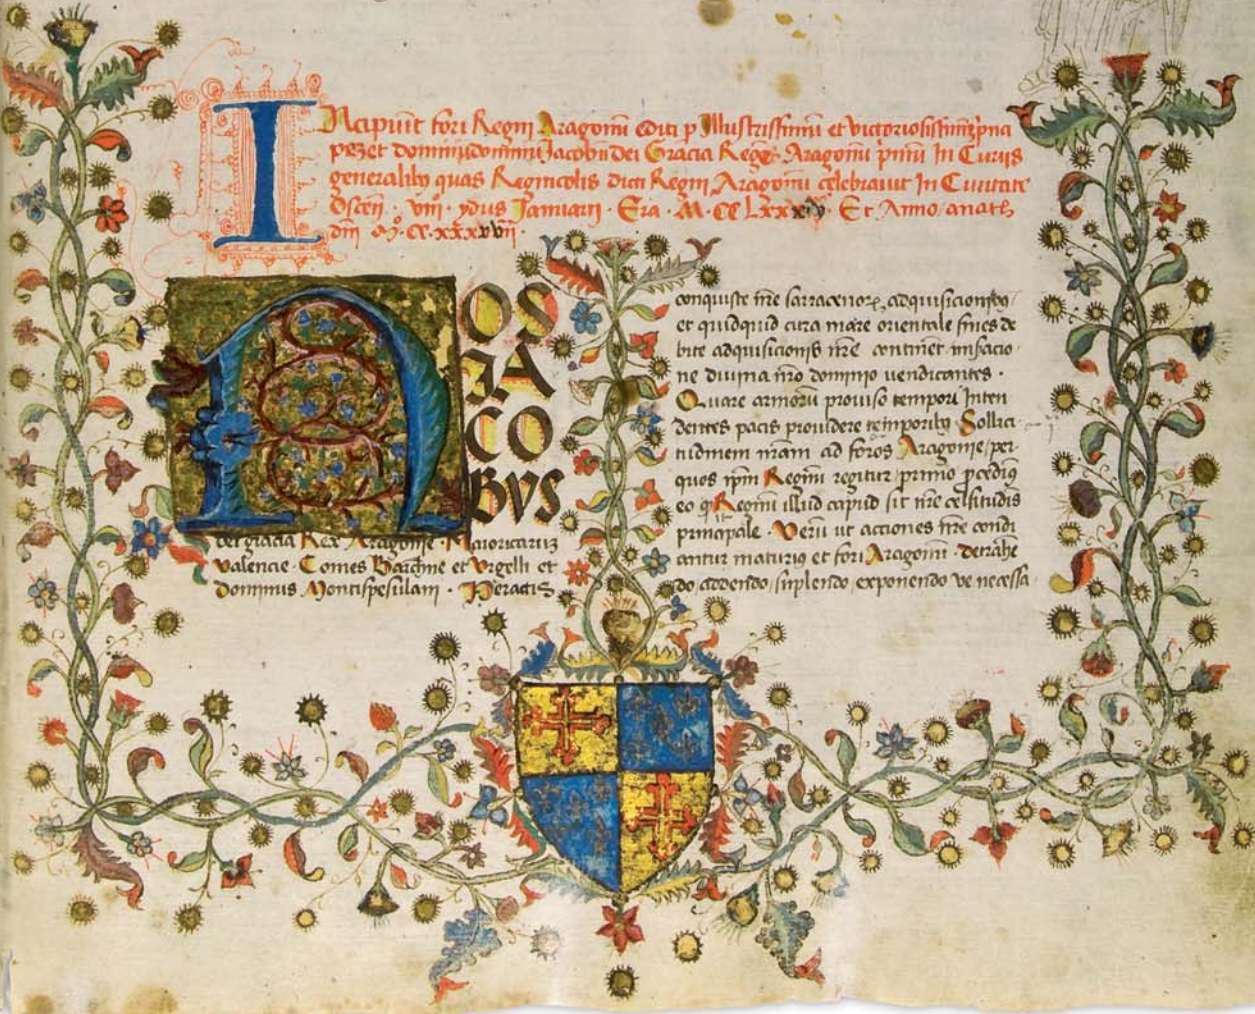 INcipiũt fori Regni Aragonũ editi p Illustrissimũ et victoriosissimũ prĩn
pez et dominũ dominũ Jacobũ dei Gracia Regẽ Aragonũ p̃mũ In Curiis
generalibꝫ quas Regnicolis dicti Regni Aragonũ celebrauit In Ciuitate
Oscẽ · viiiº · ydus Januarii · Era · M · CC Lxxx · Et Anno
dñi Mº · CC · xxxxvii ·
NOS
IA
CO
BVS
dei gracia Rex Aragonie · Maioricarum
valencie · Comes Barchñe et vrgelli et
Dominus Montispesulani · Peractis
conquiste nr̃e sarracenorꝝ adquisicionibꝫ
et quidquid citra mare orientale fines de
bite adquisicionis nr̃e continet
ne diuina nr̃o dominio vendicantes ·
Quare armorũ prouiso tempori Inten
dentes pacis prouidere temporibꝫ Sollici
tudinem nr̃am ad foros Aragonie per
quos ip̃m Regnũ regitur primo
eo qͥ Regnũ illud capud sit nr̃e celsitudis
principale · Verũ ut acciones nr̃e condi
antur maturiꝰ et fori Aragonũ · detrahẽ
do addendo suplendo exponendo ve necessa